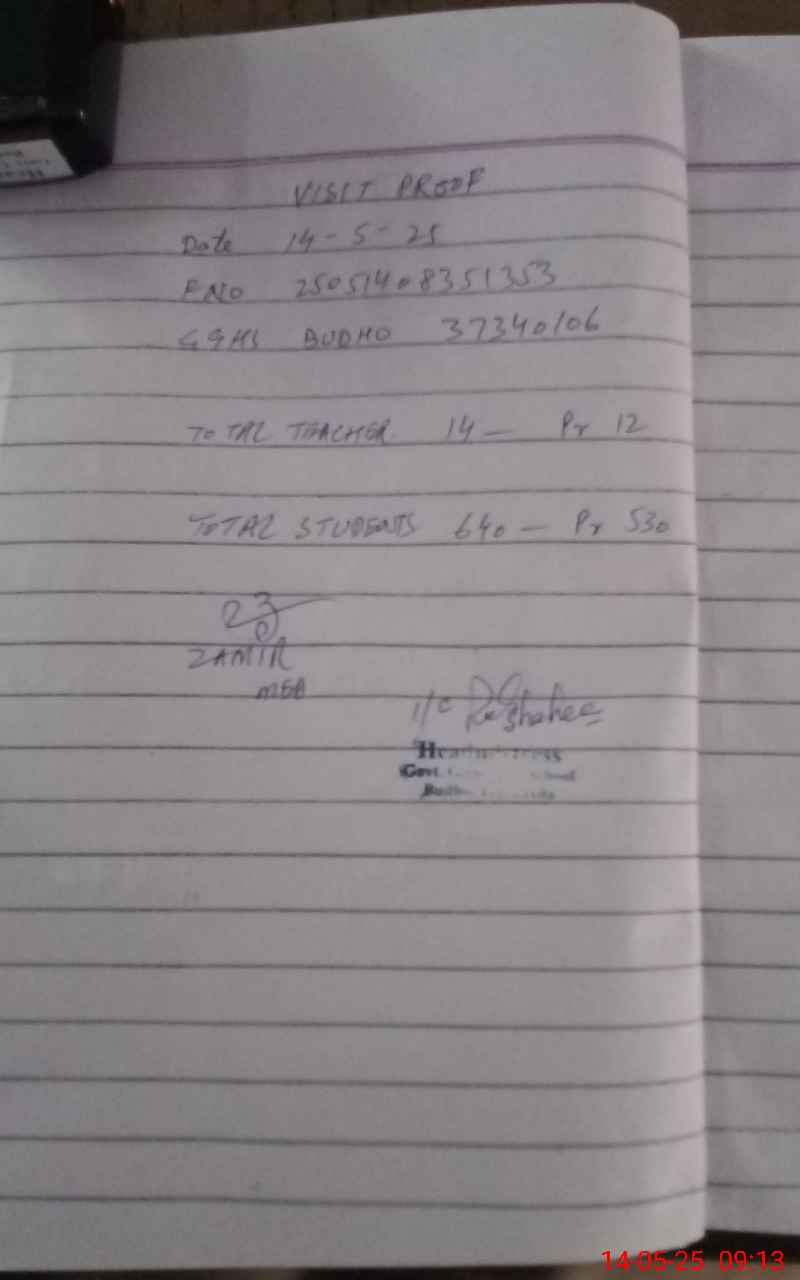 VISIT PROOF
Date 14-5-25
F.NO 25051408351353
GGHS BUDHO 37340106
TOTAL TEACHER. 14 — Pr 12
TOTAL STUDENTS 640 — Pr 530
ZAMIR
MEA
I/C
Headmistress
Govt.
14-05-25 09:13